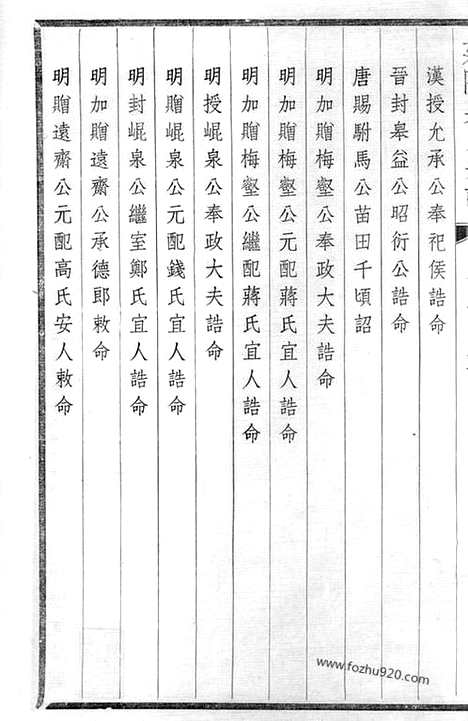 漢授允承公奉祀侯誥命
晉封皋益公昭衍公誥命
唐賜駙馬公苗田千頃詔
明加贈梅壑公奉政大夫誥命
明加贈梅壑公元配蔣氏宜人誥命
明加贈梅壑公繼配蔣氏宜人誥命
明授崐泉公奉政大夫誥命
明贈崐泉公元配錢氏宜人誥命
明封崐泉公繼室鄭氏宜人誥命
明加贈遠齋公承德郎敕命
明贈遠齋公元配高氏安人敕命
www.fozhu920.com